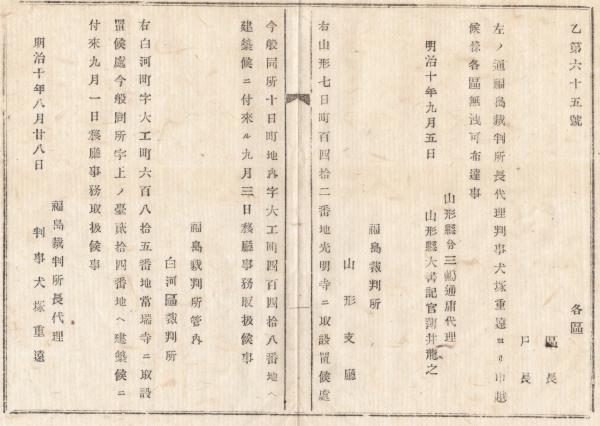 乙第六十五號
各區
區長
戸長
左ノ通福島裁判所長代理判事犬塚重遠ヨリ申越
候條各區無洩可布達事
明治十年九月五日
山形縣令三島通庸代理
山形縣大書記官薄井龍之
福島裁判所
山形支廳
右山形七日町百四拾二番地光明寺ニ取設置候處
今般同所十日町地内字大工町四百四拾八番地ヘ
建築候ニ付來ル九月三日務廳事務取扱候事
福島裁判所管内
白河區裁判所
右白河町字大工町六百八拾五番地常瑞寺ニ取設
置候處今般同所字上ノ臺貳拾四番地ヘ建築候ニ
付來九月一日務廳事務取扱候事
明治十年八月廿八日
福島裁判所長代理
判事犬塚重遠